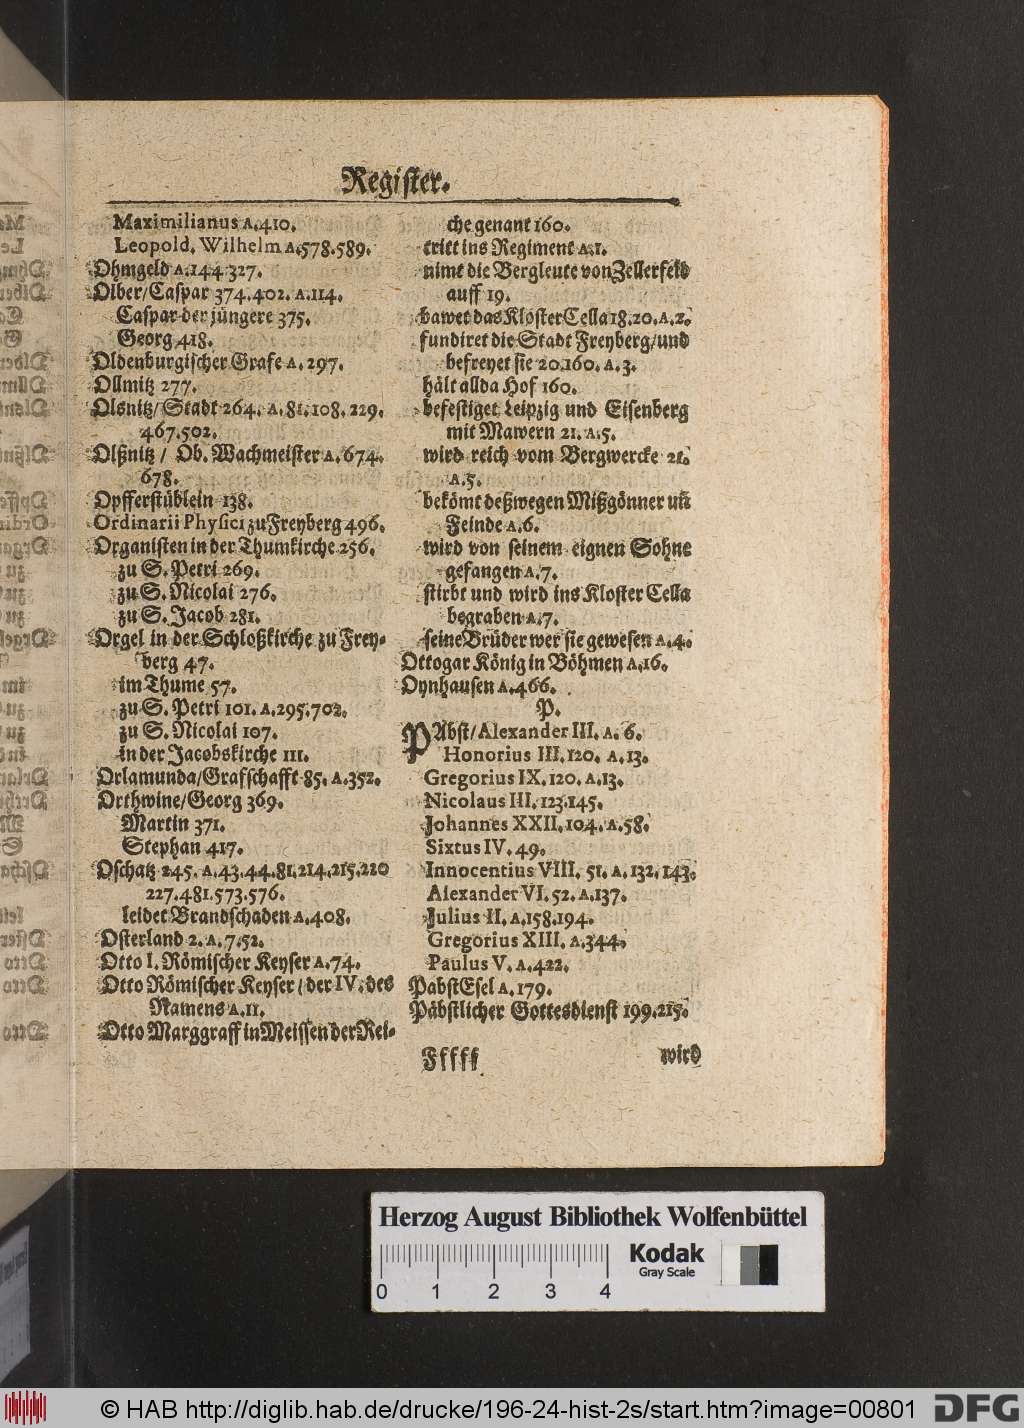 Register.
Maximilianus A.410.
Leopold. Wilhelm A.578.589.
Ohmgeld A.144.327.
Olber/Caspar 374.402. A.114.
Caspar der jüngere 375.
Georg 418.
Oldenburgischer Grafe A.297.
Ollmitz 277.
Olsnitz/Stadt 264. A.81.108.229.
467.502.
Olßnitz / Ob. Wachmeister A.674.
678.
Opfferstüblein 138.
Ordinarii Physici zu Freyberg 496.
Organisten in der Thumkirche 256.
zu S. Petri 269.
zu S. Nicolai 276.
zu S. Jacob 281.
Orgel in der Schloßkirche zu Frey-
berg 47.
im Thume 57.
zu S. Petri 101. A.295.702.
zu S. Nicolai 107.
in der Jacobskirche 111.
Orlamunda/Grafschafft 85. A.352.
Orthwine/Georg 369.
Martin 371.
Stephan 417.
Oschatz 245. A.43.44.81.214.215.220
227.481.573.576.
leidet Brandschaden A.408.
Osterland 2. A.7.52.
Otto I. Römischer Keyser A.74.
Otto Römischer Keyser/der IV. des
Namens A.11.
Otto Marggraff in Meissen der Rei-
che genant 160.
tritt ins Regiment A.1.
nimt die Bergleute von Zellerfeld
auff 19.
bawet das Kloster Cella 18.20. A.2.
fundiret die Stadt Freyberg/und
befreyet sie 20.160. A.3.
hält allda Hof 160.
befestiget Leipzig und Eisenberg
mit Mawern 21. A.5.
wird reich vom Bergwercke 21.
A.5.
bekömt deßwegen Mißgönner uñ
Feinde A.6.
wird von seinem eignen Sohne
gefangen A.7.
stirbt und wird ins Kloster Cella
begraben A.7.
seine Brüder wer sie gewesen A.4.
Ottogar König in Böhmen A.16.
Oynhausen A.466.
P.
PAbst/Alexander III. A.6.
Honorius III. 120. A.13.
Gregorius IX. 120. A.13.
Nicolaus III. 123.145.
Johannes XXII. 104. A.58.
Sixtus IV. 49.
Innocentius VIII. 51. A.132.143.
Alexander VI. 52. A.137.
Julius II. A.158.194.
Gregorius XIII. A.344.
Paulus V. A.422.
PabstEsel A.179.
Päbstlicher Gottesdienst 199.215.
Fffff
wird
Herzog August Bibliothek Wolfenbüttel
Kodak
Gray Scale
0 1 2 3 4
© HAB http://diglib.hab.de/drucke/196-24-hist-2s/start.htm?image=00801
DFG